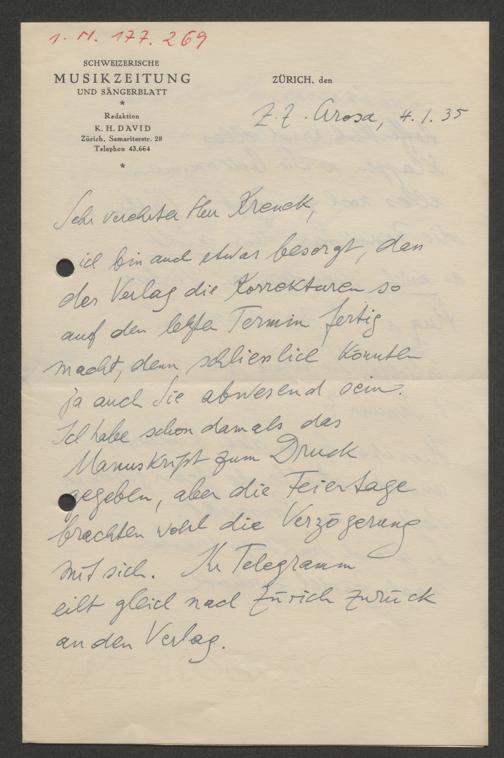 1. N. 177.269
SCHWEIZERISCHE
MUSIKZEITUNG
UND SÄNGERBLATT
*
Redaktion
K. H. DAVID
Zürich, Samariterstr. 28
Telephon 43.664
*
ZÜRICH, den
z. Z. Arosa, 4.1.35
Sehr verehrter Herr Krenek,
ich bin auch etwas besorgt, dass
der Verlag die Korrekturen so
auf den letzten Termin fertig
macht, denn schliesslich könnten
ja auch Sie abwesend sein.
Ich habe schon damals das
Manuskript zum Druck
gegeben, aber die Feiertage
brachten wohl die Verzögerung
mit sich. Ihr Telegramm
eilt gleich nach Zürich zurück
an den Verlag.